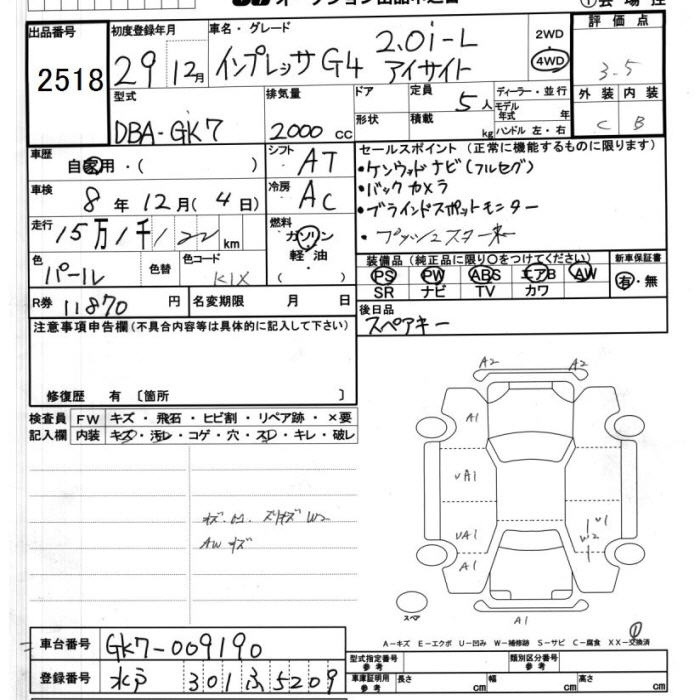 出品番号
2518
初度登録年月
29年 12月
車名・グレード
インプレッサG4 2.0i-L アイサイト
2WD
4WD
評価点
3.5
外装 内装
C B
型式
DBA-GK7
排気量
2000 cc
ドア
形状
定員 5人
積載 kg
ディーラー・並行
モデル年式 年
ハンドル 左・右
車歴
自家用・( )
シフト
AT
車検
8年 12月(4日)
冷房
AC
走行
15万1千122 km
燃料
ガソリン
軽油
( )
色
パール
色替
色コード
K1X
R券 11870 円
名変期限 月 日
セールスポイント(正常に機能するものに限ります)
・ケンウッドナビ(フルセグ)
・バックカメラ
・ブラインドスポットモニター
・プッシュスタート
装備品(純正品に限り○をつけてください)
PS PW ABS エアB AW
SR ナビ TV カワ
新車保証書
有・無
後日品
スペアキー
注意事項申告欄(不具合内容等は具体的に記入して下さい)
修復歴 有 〔箇所 〕
検査員記入欄
FW キズ・飛石・ヒビ割・リペア跡・×要
内装 キズ・汚レ・コゲ・穴・スレ・キレ・破レ
AWキズ
A2 A2
A1
UA1
UA1
A1
U1
W2
A1
スペア
A-キズ E-エクボ U-凹み W-補修跡 S-サビ C-腐食 XX-交換済
車台番号
GK7-009190
登録番号
水戸 301 ふ 5209
型式指定番号参考
類別区分番号参考
車庫証明用参考
長さ cm 幅 cm 高さ cm